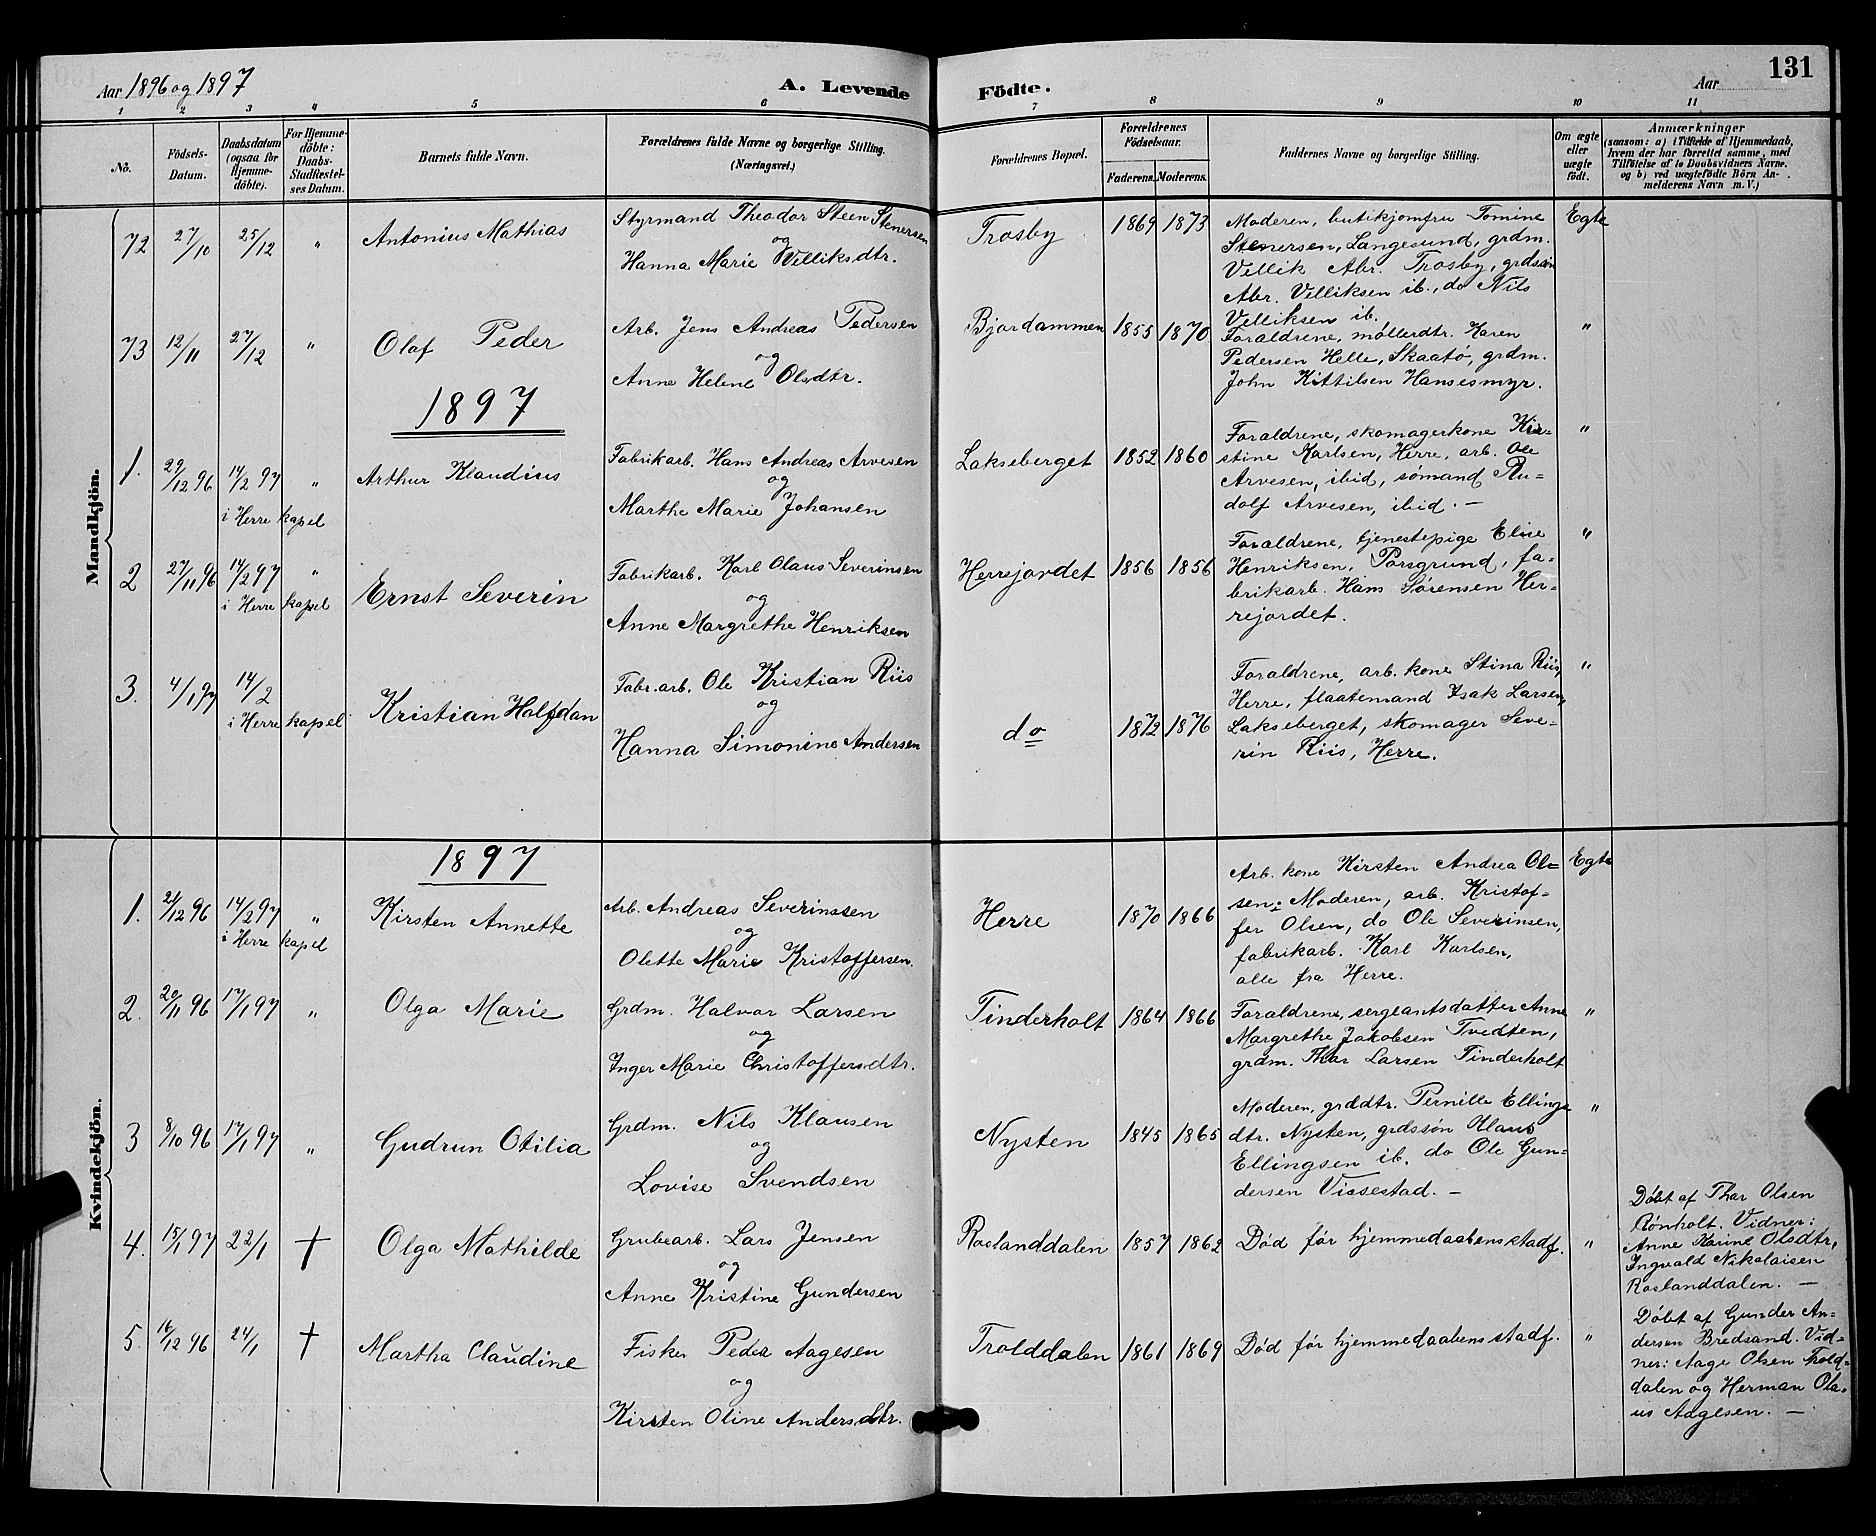 131
Aar 1896 og 1897
A. Levende
Födte.
Aar
1 2 3 4 5 6 7 8 9 10 11
No.
Födsels-
Datum.
Daabsdatum
(ogsaa for
Hjemme-
döbte).
For Hjemme-
döbte:
Daabs-
Stadfæstel-
ses Datum.
Barnets fulde Navn.
Forældrenes fulde Navne og borgerlige Stilling.
(Næringsvei.)
Forældrenes Bopæl.
Forældrenes
Födselsaar.
Faderens. Moderens.
Faddernes Navne og borgerlige Stilling.
Om ægte
eller
uægte
födt.
Anmærkninger
(saasom: a) i Tilfælde af Hjemmedaab,
hvem der har forrettet samme, med
Tilföielse af to Daabsvidners Navne.
og b) ved uægtefödte Börn An-
melderens Navn m. V.)
Mandkjön.
72 27/10 25/12 " Antonius Mathias
Styrmand Theodor Steen Stenersen
og
Hanna Marie Velliksdtr.
Trosby 1869 1873
Moderen, butikjomfru Tomine
Stenersen, Langesund, grdm.
Vellik Abr. Trosby, grdsøn
Abr. Velliksen ib., do Nils
Velliksen ib.
Egte
73 12/11 27/12 " Olaf Peder
Arb. Jens Andreas Pedersen
og
Anne Helene Olsdtr.
Bjordammen 1855 1870
Foraldrene, møllerdtr. Karen
Pedersen Helle, Skaatø, grdm.
John Kittilsen Hansesmyr.
"
1897
1. 29/12 96 14/2 97 " Arthur Klaudius
i Herre kapel
Fabrikarb. Hans Andreas Arvesen
og
Marthe Marie Johansen
Lakseberget 1852 1860
Foraldrene, skomagerkone Kir=
stine Karlsen, Herre, arb. Ole
Arvesen, ibid, sømand Ru=
dolf Arvesen, ibid. —
"
2 27/11 96 14/2 97 " Ernst Severin
i Herre kapel
Fabrikarb. Karl Olaus Severinsen
og
Anne Margrethe Henriksen
Herrejordet 1856 1856
Foraldrene, tjenestepige Elise
Henriksen, Porsgrund, fa=
brikarb. Hans Sørensen Her=
rejordet.
"
3. 4/1 97 14/2 Kristian Halfdan
i Herre kapel
Fabr.arb. Ole Kristian Riis
og
Hanna Simonine Andersen
do 1872 1876
Foraldrene, arb. kone Stina Riis,
Herre, flaatemand Isak Larsen,
Lakseberget, skomager Seve=
rin Riis, Herre.
"
Kvindekjön.
1897
1. 21/12 96 14/2 97 " Kirsten Annette
i Herre kapel
Arb. Andreas Severinssen
og
Olette Marie Kristoffersen.
Herre 1870 1866
Arb. kone Kirsten Andrea Ol=
sen: Moderen, arb. Kristof=
fer Olsen, do Ole Severinsen,
fabrikarb. Karl Karlsen,
alle fra Herre.
Egte
2. 20/11 96 17/1 97 " Olga Marie
Grdm. Halvor Larsen
og
Inger Marie Christoffersdtr.
Tinderholt 1864 1866
Foraldrene, sergeantsdatter Anne
Margrethe Jakobsen Tvedten,
grdm. Thor Larsen Tinderholt
"
3 8/10 96 17/1 97 " Gudrun Otilia
Grdm. Nils Klausen
og
Lovise Svendsen
Nysten 1845 1865
Moderen, grddtr. Pernille Ellings
dtr. Nysten, grdssøn Klaus
Ellingsen ib. do Ole Gun=
dersen Vissestad. —
"
4. 15/1 97 22/1 † Olga Mathilde
Grubearb. Lars Jensen
og
Anne Kristine Gundersen
Roslanddalen 1857 1862 Død før hjemmedaabens stadf. "
Døbt af Thor Olsen
Rønholt. Vidner:
Anne Karine Olsdtr,
Ingvald Nikolaisen
Roslanddalen. —
5. 16/12 96 24/1 † Martha Claudine
Fisker Peder Aagesen
og
Kirsten Oline Andersdtr.
Trolddalen 1861 1869 Død før hjemmedaabens stadf. "
Døbt af Gunder An=
dersen Bredsand. Vid=
ner: Aage Olsen Trold=
dalen og Herman Ola=
us Aagesen. —